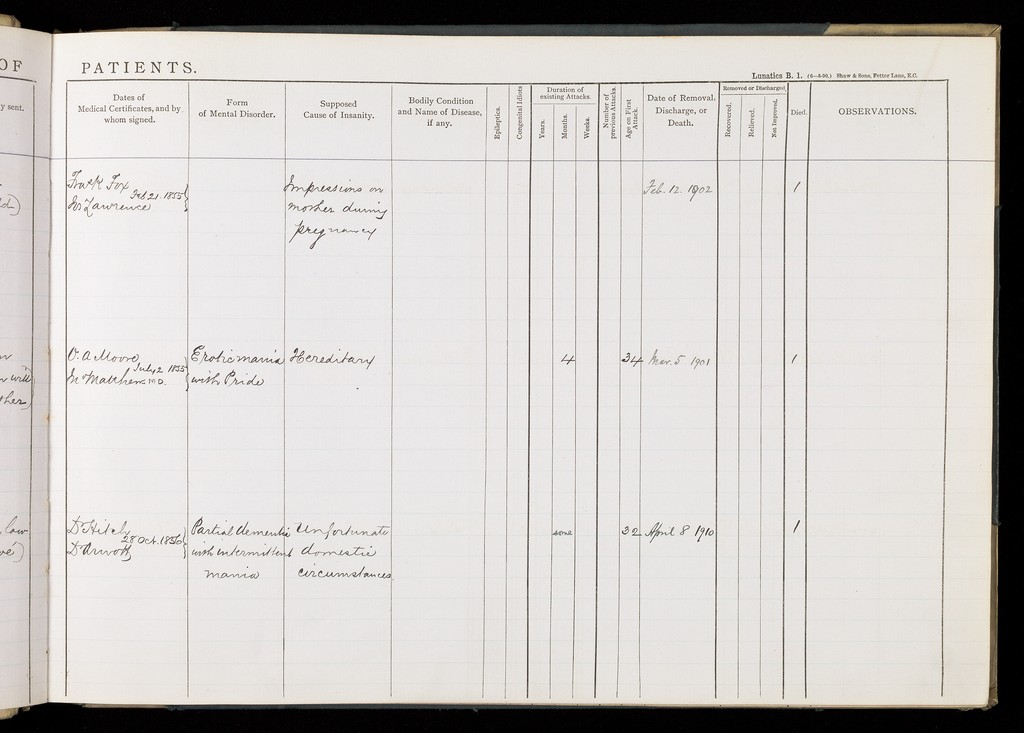 OF
PATIENTS.
Lunatics B. 1. (6—8-00.) Shaw & Sons, Fetter Lane, E.C.
y sent.
Dates of
Medical Certificates, and by
whom signed.
Form
of Mental Disorder.
Supposed
Cause of Insanity.
Bodily Condition
and Name of Disease,
if any.
Epileptics.
Congenital Idiots
Duration of
existing Attacks.
Years.
Months.
Weeks.
Number of
previous Attacks.
Age on First
Attack.
Date of Removal,
Discharge, or
Death.
Removed or Discharged
Recovered.
Relieved.
Not Improved.
Died.
OBSERVATIONS.
Fox
Feb 21. 1855
Lawrence
Impressions on
mother during
pregnancy
Feb. 12. 1902
1
Moore
July 2 1855
Matthews M.D.
Erotic mania
with Pride
Hereditary
4
34
Mar. 5 1901
1
will
ther)
Dr Hitch
28 Oct. 1856
Dr
Partial dementia
with intermittent
mania
Unfortunate
domestic
circumstances
some
32
April 8 1910
1
law